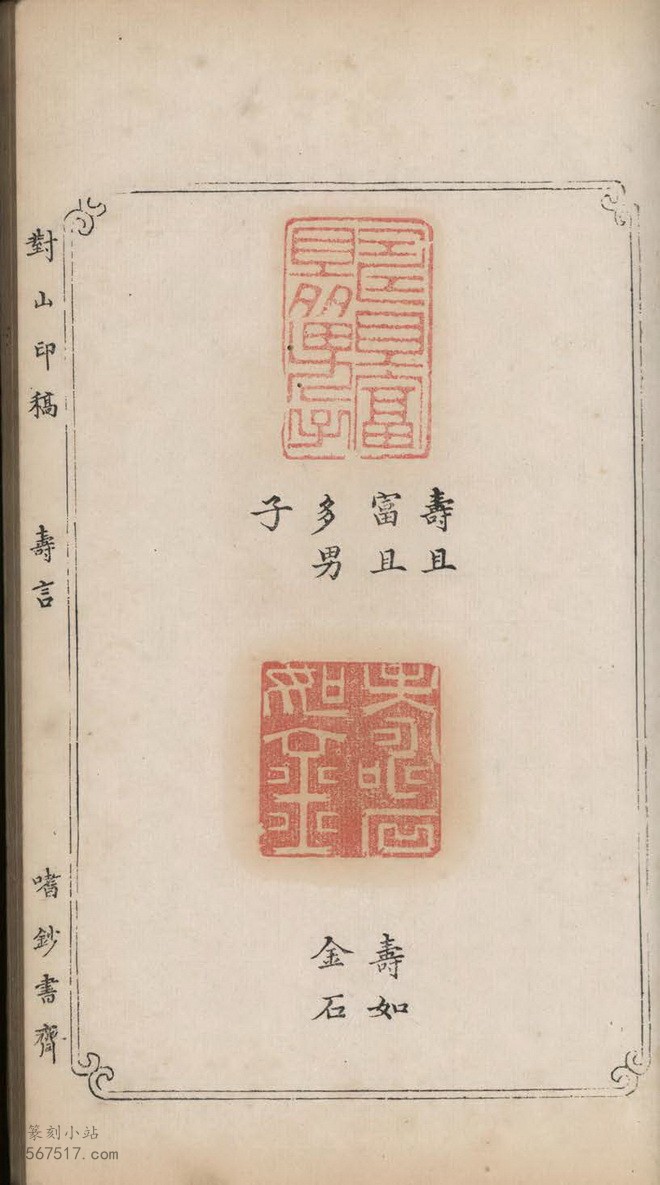 壽且
富且
多男
子
壽如
金石
對山印稿
壽言
嗜鈔書齋
篆刻小站
567517.com